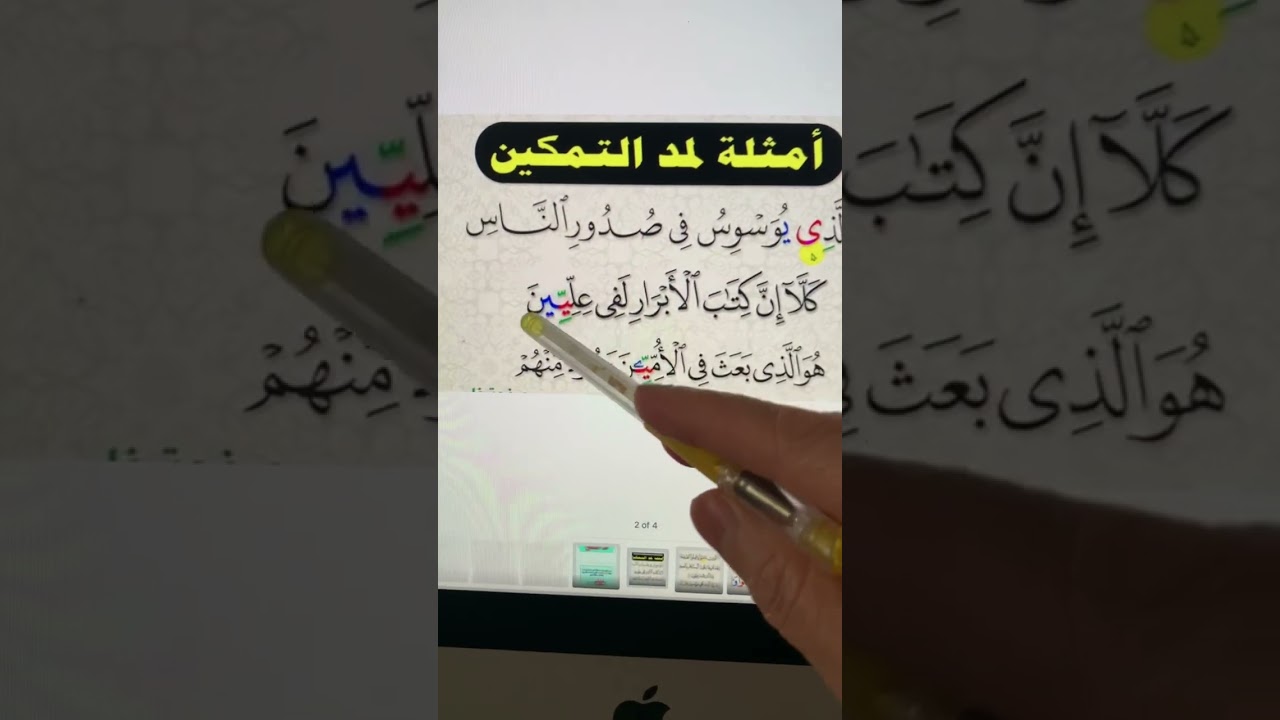 أمثلة لمد التمكين
ذِى يُوَسْوِسُ فِى صُدُورِ ٱلنَّاسِ
كَلَّآ إِنَّ كِتَٰبَ ٱلْأَبْرَارِ لَفِى عِلِّيِّينَ
هُوَ ٱلَّذِى بَعَثَ فِى ٱلْأُمِّيِّـۧنَ مِنْهُمْ
2 of 4